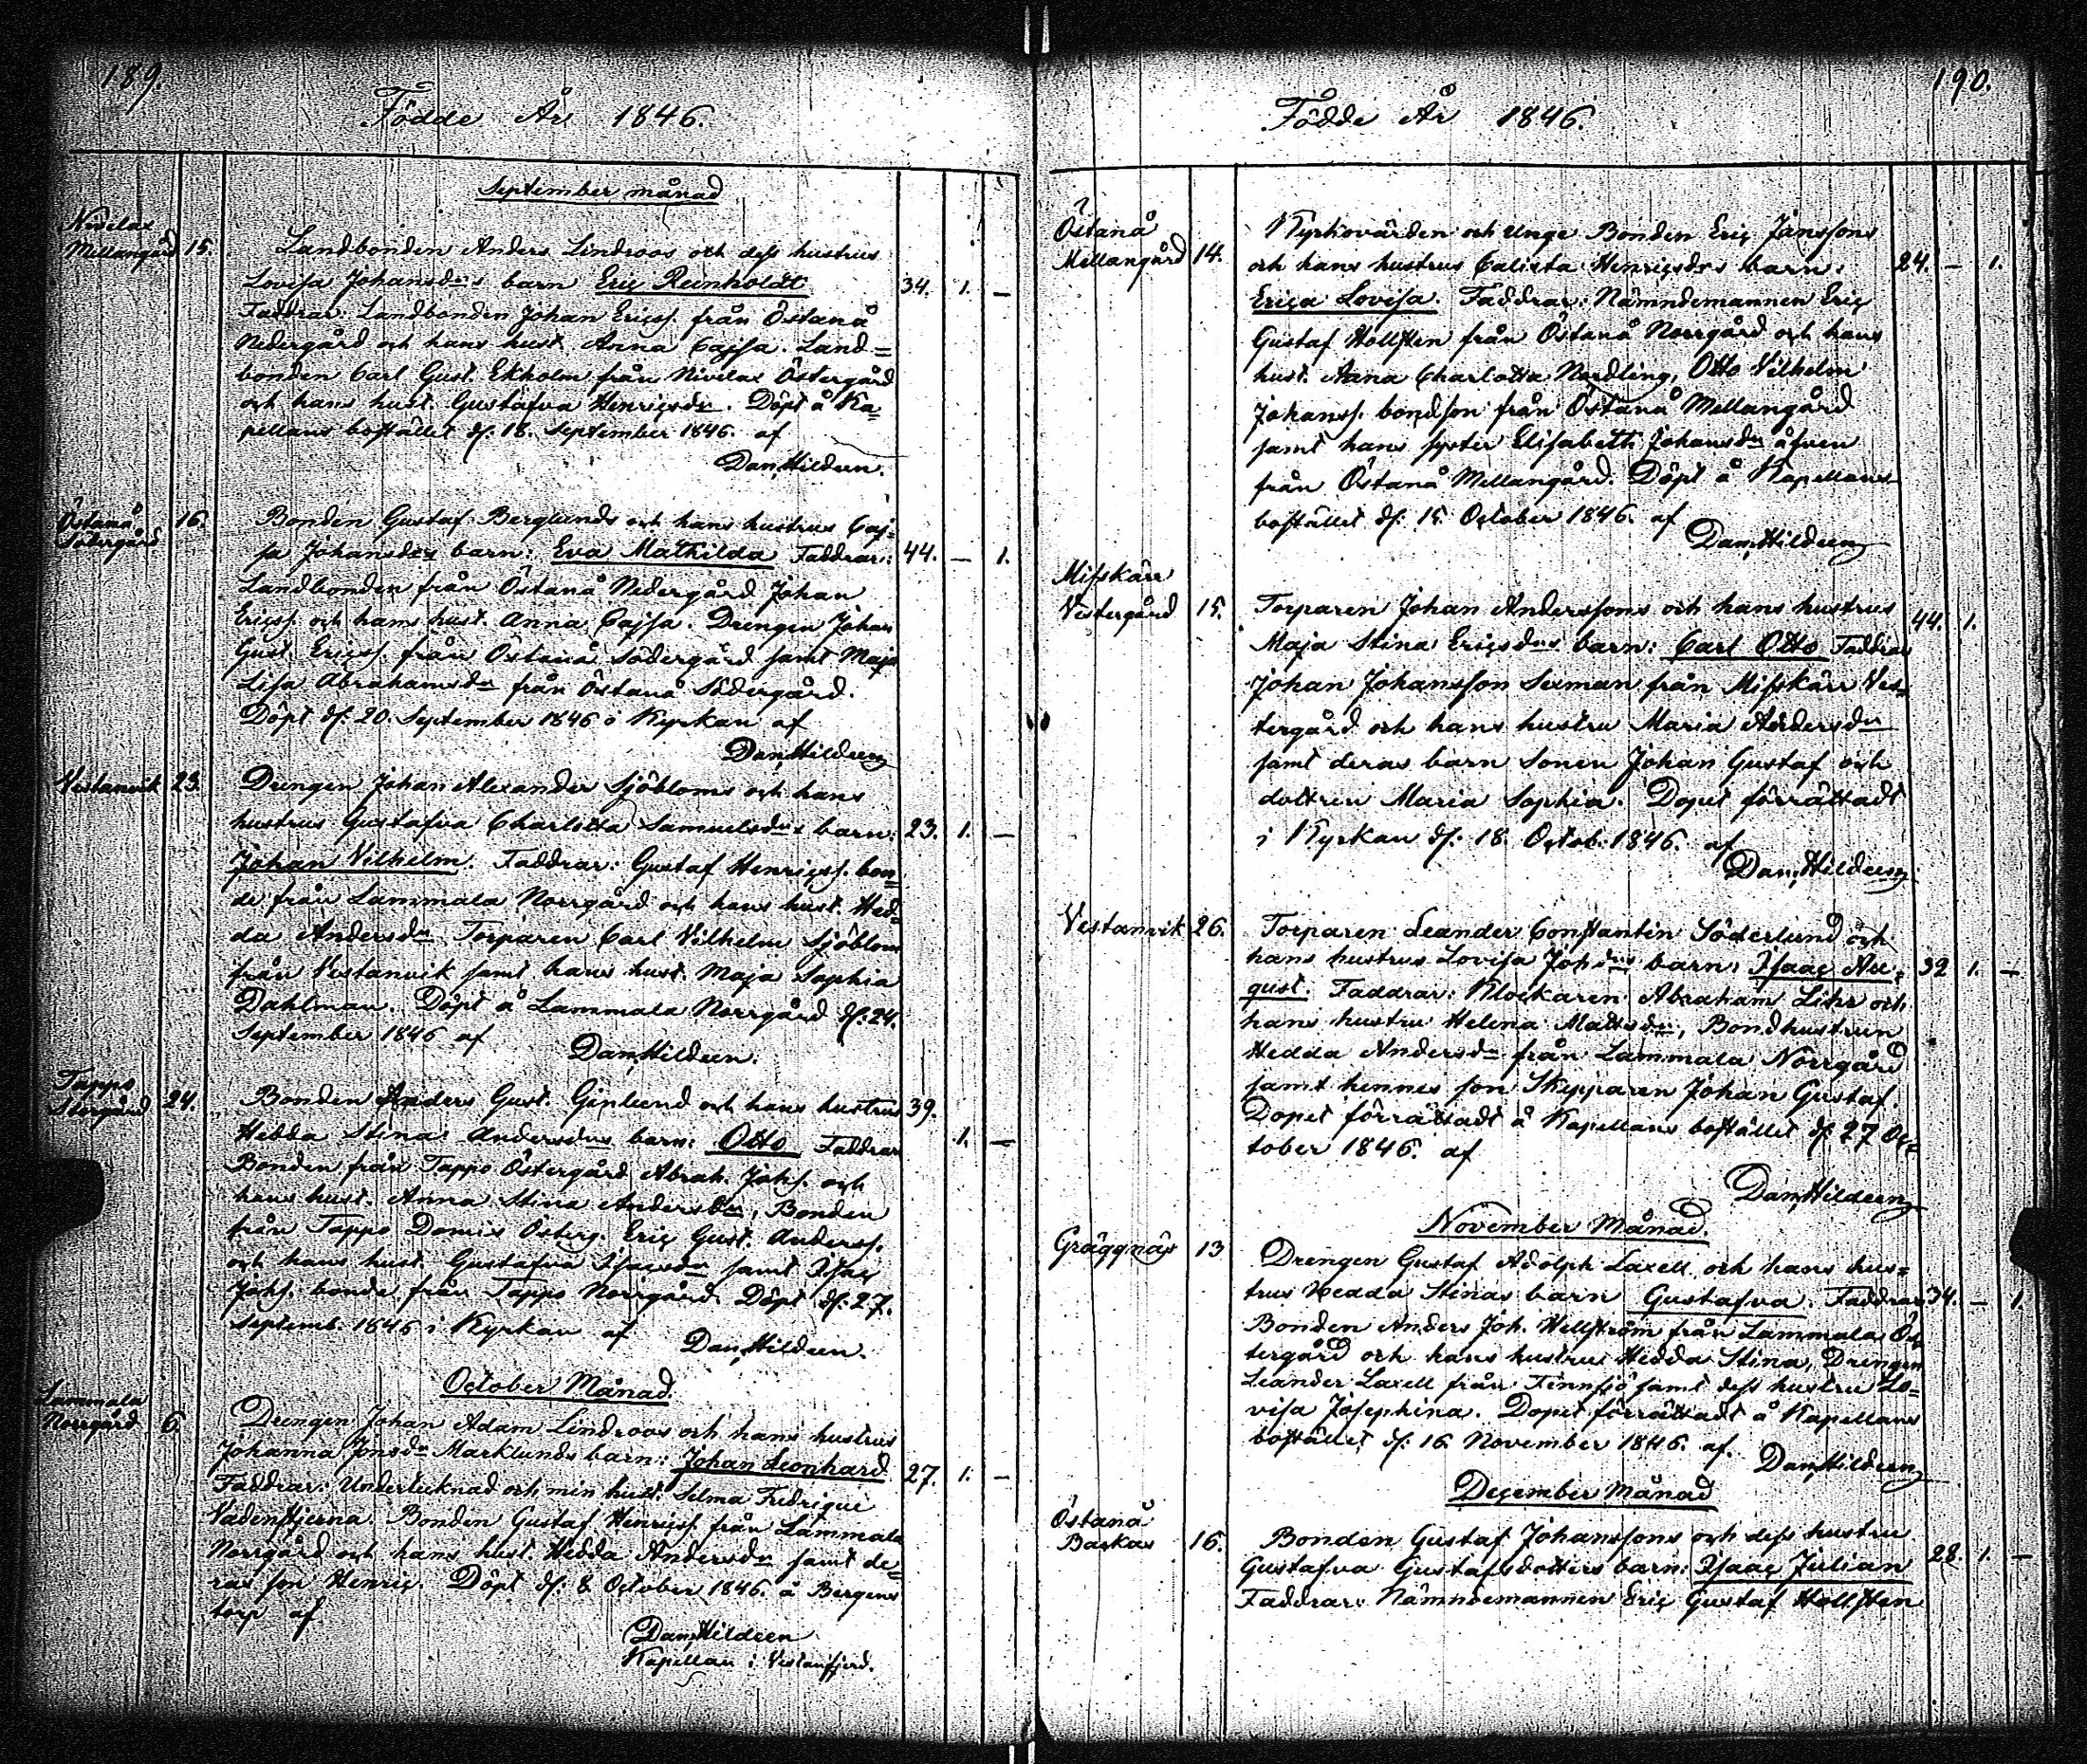 189.
Födde År 1846.
September månad
Nivelax
Mellangård 15.
Landbonden Anders Lindroos och dess hustrus
Lovisa Johansdrs barn Eric Reinholdt 34. 1. —
Faddrar: Landbonden Johan Ericss. från Östanå
Nedergård och hans hust. Anna Cajsa. Land=
bonden Carl Gust. Ekholm från Nivelax Östergård
och hans hust. Gustafva Henricsdr. Döpt å Ka=
pellans bostället d. 18. September 1846. af
Dan. Hildeen.
Östanå
Södergård 16.
Bonden Gustaf Berglunds och hans hustrus Caj=
sa Johansdrs barn: Eva Mathilda Faddrar: 44. — 1.
Landbonden från Östanå Nedergård Johan
Ericss. och hans hust. Anna Cajsa. Drengen Johan
Gust. Ericss. från Östanå Södergård samt Maja
Lisa Abrahamsdr från Östanå Södergård.
Döpt d. 20. September 1846 i Kyrkan af
Dan. Hildeen
Vestanvik 23.
Drengen Johan Alexander Sjöbloms och hans
hustrus Gustafva Charlotta Samuelsdrs barn: 23. 1. —
Johan Vilhelm. Faddrar: Gustaf Henricss. bon=
de från Lammala Norrgård och hans hust. Hed=
da Andersdr Torparen Carl Vilhelm Sjöblom
från Vestanvik samt hans hust. Maja Sophia
Dahlman. Döpt å Lammala Norrgård d. 24.
September 1846 af
Dan. Hildeen.
Tappo
Storgård 24.
Bonden Anders Gust. Ginlund och hans hustrus 39.
Hedda Stina Andersdrs barn: Otto Faddrar 1. —
Bonden från Tappo Östergård Abrah. Johs. och
hans hust. Anna Stina Andersdr, Bonden
från Tappo Domis Österg. Eric Gust. Anderss.
och hans hust. Gustafva Isacsdr samt Isac
Johs. bonde från Tappo Norrgård. Döpt d. 27.
Septemb. 1846 i Kyrkan af
Dan. Hildeen.
October Månad.
Lammala
Norrgård 6.
Drengen Johan Adam Lindroos och hans hustrus
Johanna Jonsdr Marklunds barn: Johan Leonhard 27. 1. —
Faddrar: Undertecknad och min hust. Selma Fredrique
Vadenstjerna. Bonden Gustaf Henricss. från Lammala
Norrgård och hans hust. Hedda Andersdr samt de=
ras son Henric. Döpt d. 8 October 1846. å Bergens
torp af
Dan. Hildeen
Kapellan i Vestanfjerd.
190.
Födde År 1846.
Östanå
Mellangård 14.
Kyrkovärden och Unge Bonden Eric Jänssons
och hans hustrus Calista Henricsdrs barn: 24. — 1.
Erica Lovisa. Faddrar: Nämndemannen Eric
Gustaf Hollsten från Östanå Norrgård och hans
hust. Anna Charlotta Nordling, Otto Vilhelm
Johanss. bondson från Östanå Mellangård
samt hans syster Elisabeth Johansdr äfven
från Östanå Mellangård. Döpt å Kapellans
bostället d. 15. October 1846. af
Dan. Hildeen
Misskärr
Vestergård 15.
Torparen Johan Anderssons och hans hustrus 44. 1.
Maja Stina Ericsdrs barn: Carl Otto Faddrar
Johan Johansson Sexman från Misskärr Ves=
tergård och hans hustru Maria Andersdr
samt deras barn Sonen Johan Gustaf och
dottren Maria Sophia. Dopet förrättadt
i Kyrkan d. 18. Octob. 1846. af
Dan. Hildeen
Vestanvik 26.
Torparen Leander Constantin Söderlund och
hans hustrus Lovisa Johdrs barn: Isaac Au= 32 1. —
gust. Faddrar: Klockaren Abraham Lihr och
hans hustru Helena Mattsdr, Bondhustrun
Hedda Andersdr från Lammala Norrgård
samt hennes son Skepparen Johan Gustaf.
Dopet förrättadt å Kapellans bostället d. 27 Oc=
tober 1846. af
Dan. Hildeen
November Månad.
Gräggnäs 13
Drengen Gustaf Adolph Laxell och hans hus=
trus Hedda Stinas barn Gustafva. Faddrar 34. — 1.
Bonden Anders Joh. Hellström från Lammala Ös=
tergård och hans hustru Hedda Stina, Drengen
Leander Laxell från Finnsjö samt dess hustru Lo=
visa Josephina. Dopet förrättadt å Kapellans
bostället d. 16. November 1846. af.
Dan. Hildeen
December Månad
Östanå
Backas 16.
Bonden Gustaf Johanssons och dess hustru
Gustafva Gustafsdotters barn: Isaac Julian 28. 1. —
Faddrar: Nämndemannen Eric Gustaf Hollsten